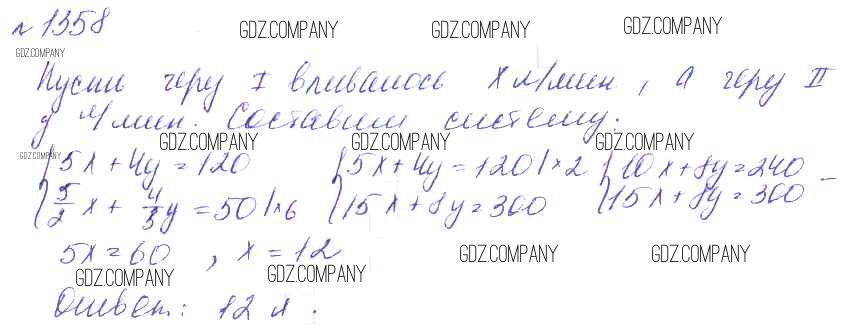 №1358 GDZ.COMPANY GDZ.COMPANY GDZ.COMPANY
GDZ.COMPANY
Пусть через I вливалось x л/мин, а через II
y л/мин. Составим систему:
GDZ.COMPANY GDZ.COMPANY GDZ.COMPANY GDZ.COMPANY
{5x+4y=120 {5x+4y=120|×2 {10x+8y=240
{5/2x+4/3y=50|×6 {15x+8y=300 {15x+8y=300 –
5x=60, x=12
GDZ.COMPANY GDZ.COMPANY GDZ.COMPANY GDZ.COMPANY
Ответ: 12 л.